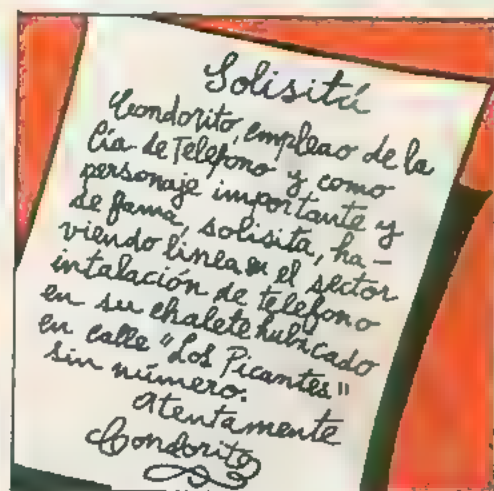 Solisitú
Condorito empleao de la
Cía de Telefono y como
personaje importante y
de fama, solisita, ha-
viendo linea en el sector
intalación de telefono
en su chalete hubicado
en calle "Los Picantes"
sin número.
Atentamente
Condorito